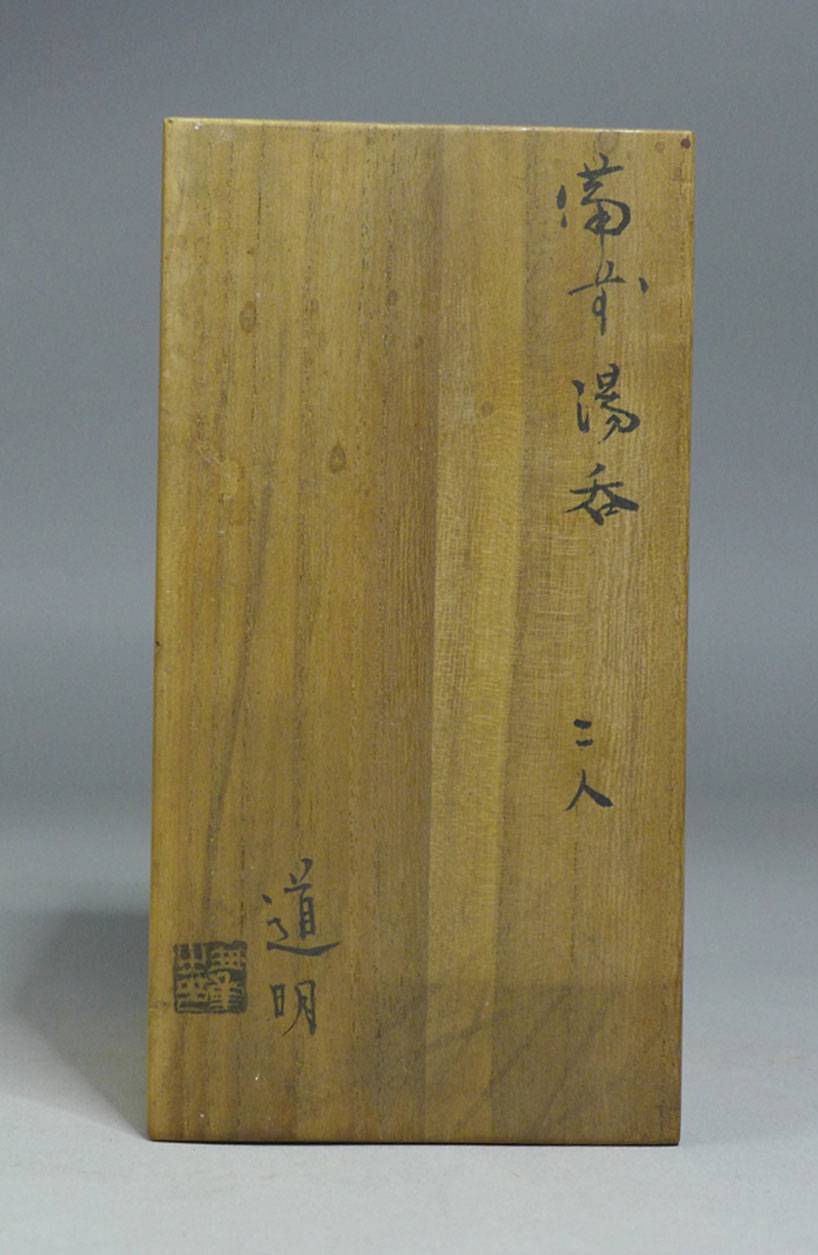 備前湯呑 二人
道明